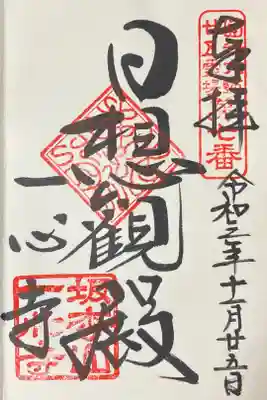 奉拝
七番
日想観殿
一心寺
令和三年十一月廿五日
坂松山